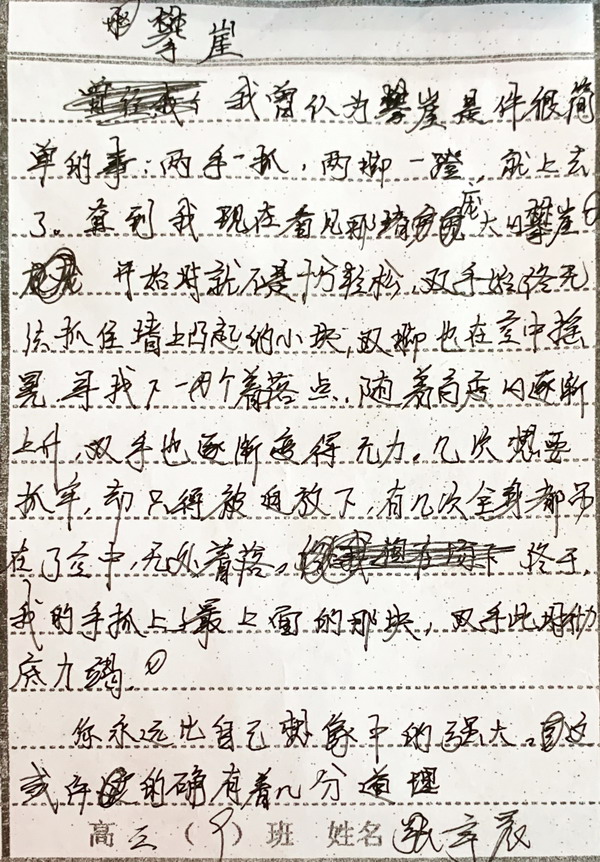 攀崖
我曾认为攀崖是件很简
单的事：两手一抓，两脚一蹬，就上去
了。直到我现在看见那堵庞大的攀崖
开始时就不是十分轻松，双手始终无
法抓住墙上凸起的小块，双脚也在空中摇
晃寻找下一个着落点，随着高度的逐渐
上升，双手也逐渐变得无力。几次想要
抓牢，却只得被迫放下，有几次全身都吊
在了空中，无处着落。终于，
我的手抓上了最上面的那块，双手此时彻
底力竭。
你永远比自己想象中的强大。
或许的确有着几分道理
高三（9）班 姓名